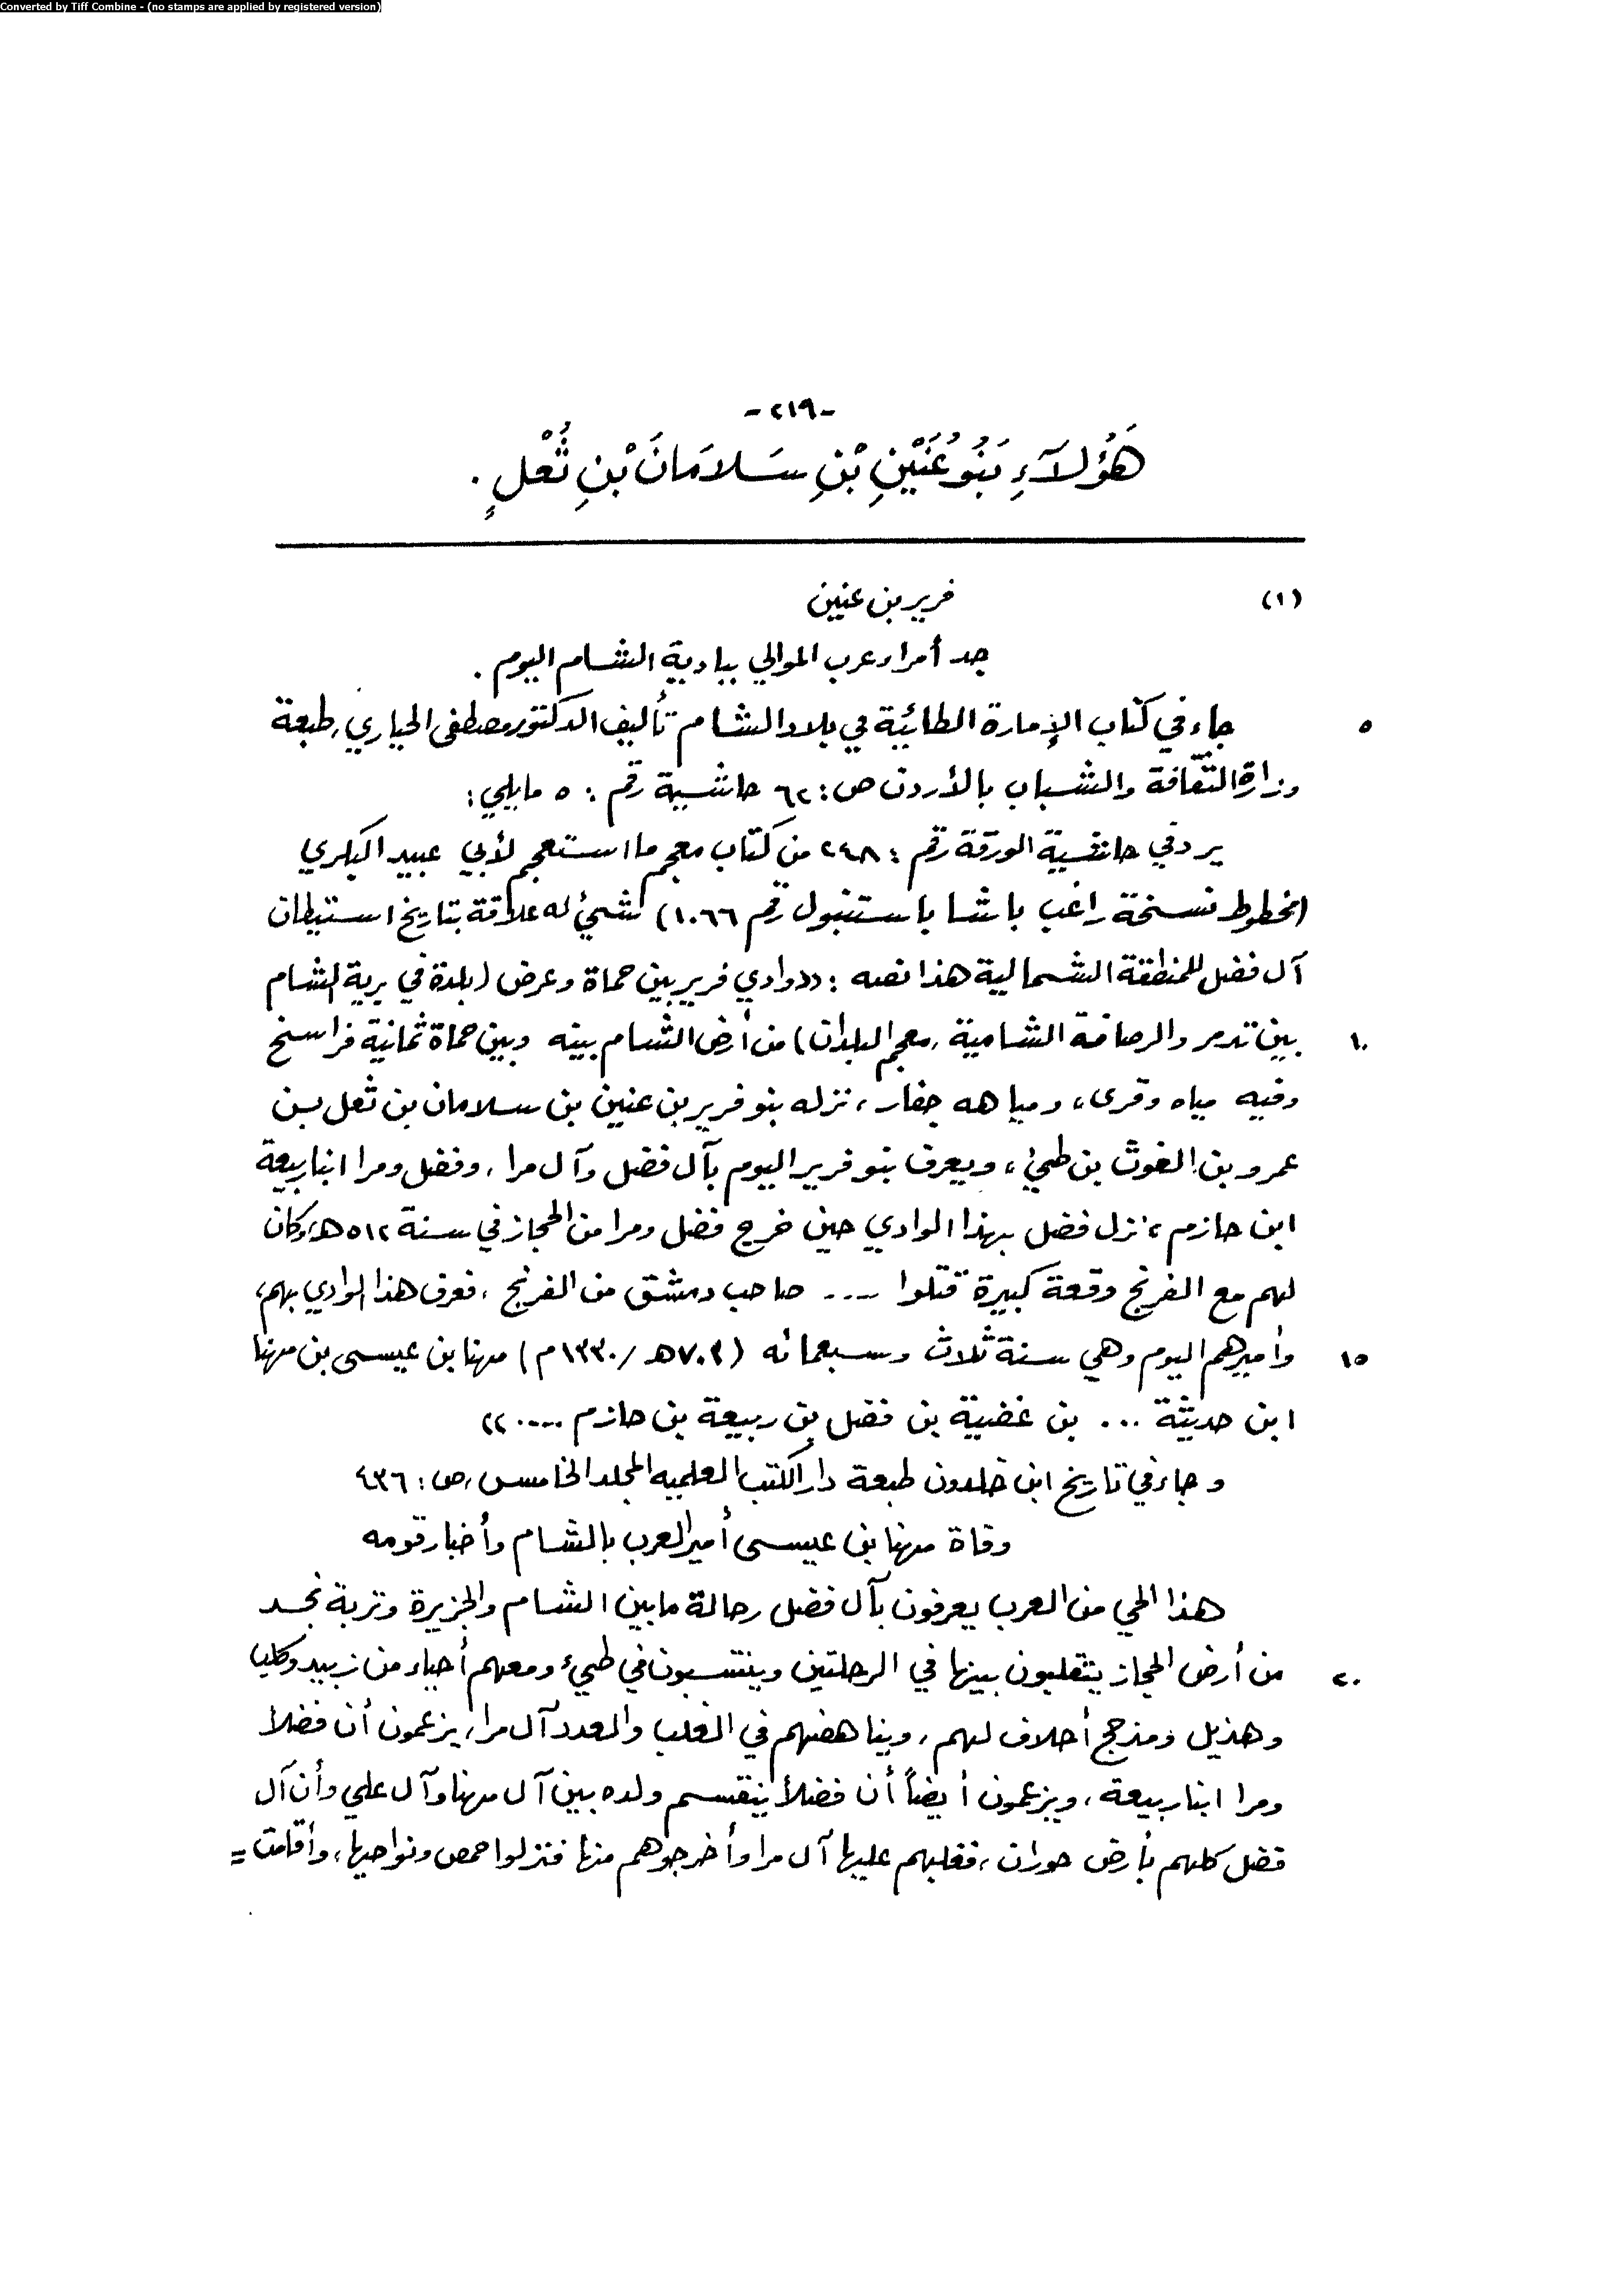 Converted by Tiff Combine - (no stamps are applied by registered version)
-٢١٩-
هَؤُلَآءِ بَنُو عُنَيْنِ بْنِ سَلَامَانَ بْنِ ثُعْلٍ .
(١) فرير بن عنين
جد أمراء عرب الموالي ببادية الشام اليوم .
٥ جاء في كتاب الإمارة الطائية في بلاد الشام تأليف الدكتور مصطفى الحياري, طبعة
وزارة الثقافة والشباب بالأردن ص: ٦٢ حاشية رقم : ٥ مايلي:
يرد في حاشية الورقة رقم : ٢٤٨ من كتاب معجم ما استعجم لأبي عبيد البكري
(مخطوط نسخة راغب باشا باستنبول رقم ١٠٦٦) شيئ له علاقة بتاريخ استيطان
آل فضل للمنطقة الشمالية هذا نصه : ((وادي فرير بين حماة وعرض (بلدة في برية الشام
١٠ بين تدمر والرصافة الشامية, معجم البلدان) من أرض الشام بينه وبين حماة ثمانية فراسخ
وفيه مياه وقرى، ومياهه جفار، نزله بنو فرير بن عنين بن سلامان بن ثعل بن
عمرو بن الغوث بن طيئ، ويعرف بنو فرير اليوم بآل فضل وآل مرا، وفضل ومرا ابنا ربيعة
ابن حازم، نزل فضل بهذا الوادي حين خرج فضل ومرا من الحجاز في سنة ٥١٢ هـ، وكان
لهم مع الفرنج وقعة كبيرة قتلوا .... صاحب دمشق من الفرنج ، فعرف هذا الوادي بهم،
١٥ وأميرهم اليوم وهي سنة ثلاث وسبعمائه (٧٠٣هـ/١٣٣٠م) مهنا بن عيسى بن مهنا
ابن حديثة ... بن غضية بن فضل بن ربيعة بن حازم ....))
وجاء في تاريخ ابن خلدون طبعة دار الكتب العلميه المجلد الخامس, ص: ٤٣٦
وفاة مهنا بن عيسى أمير العرب بالشام وأخبار قومه
هذا الحي من العرب يعرفون بآل فضل رحالة مابين الشام والجزيرة وتربة نجد
٢٠ من أرض الحجاز يتقلبون بينها في الرحلتين وينتسبون في طيئ ومعهم أحياء من زبيد وكلب
وهذيل ومذحج أحلاف لهم، ويناهضهم في الغلب والعدد آل مرا، يزعمون أن فضلاً
ومرا ابنا ربيعة، ويزعمون أيضاً أن فضلاً ينقسم ولده بين آل مهنا وآل علي وأن آل
فضل كلهم بأرض حوران، فغلبهم عليها آل مرا وأخرجوهم منها فنزلوا حمص ونواحيها، وأقامت =